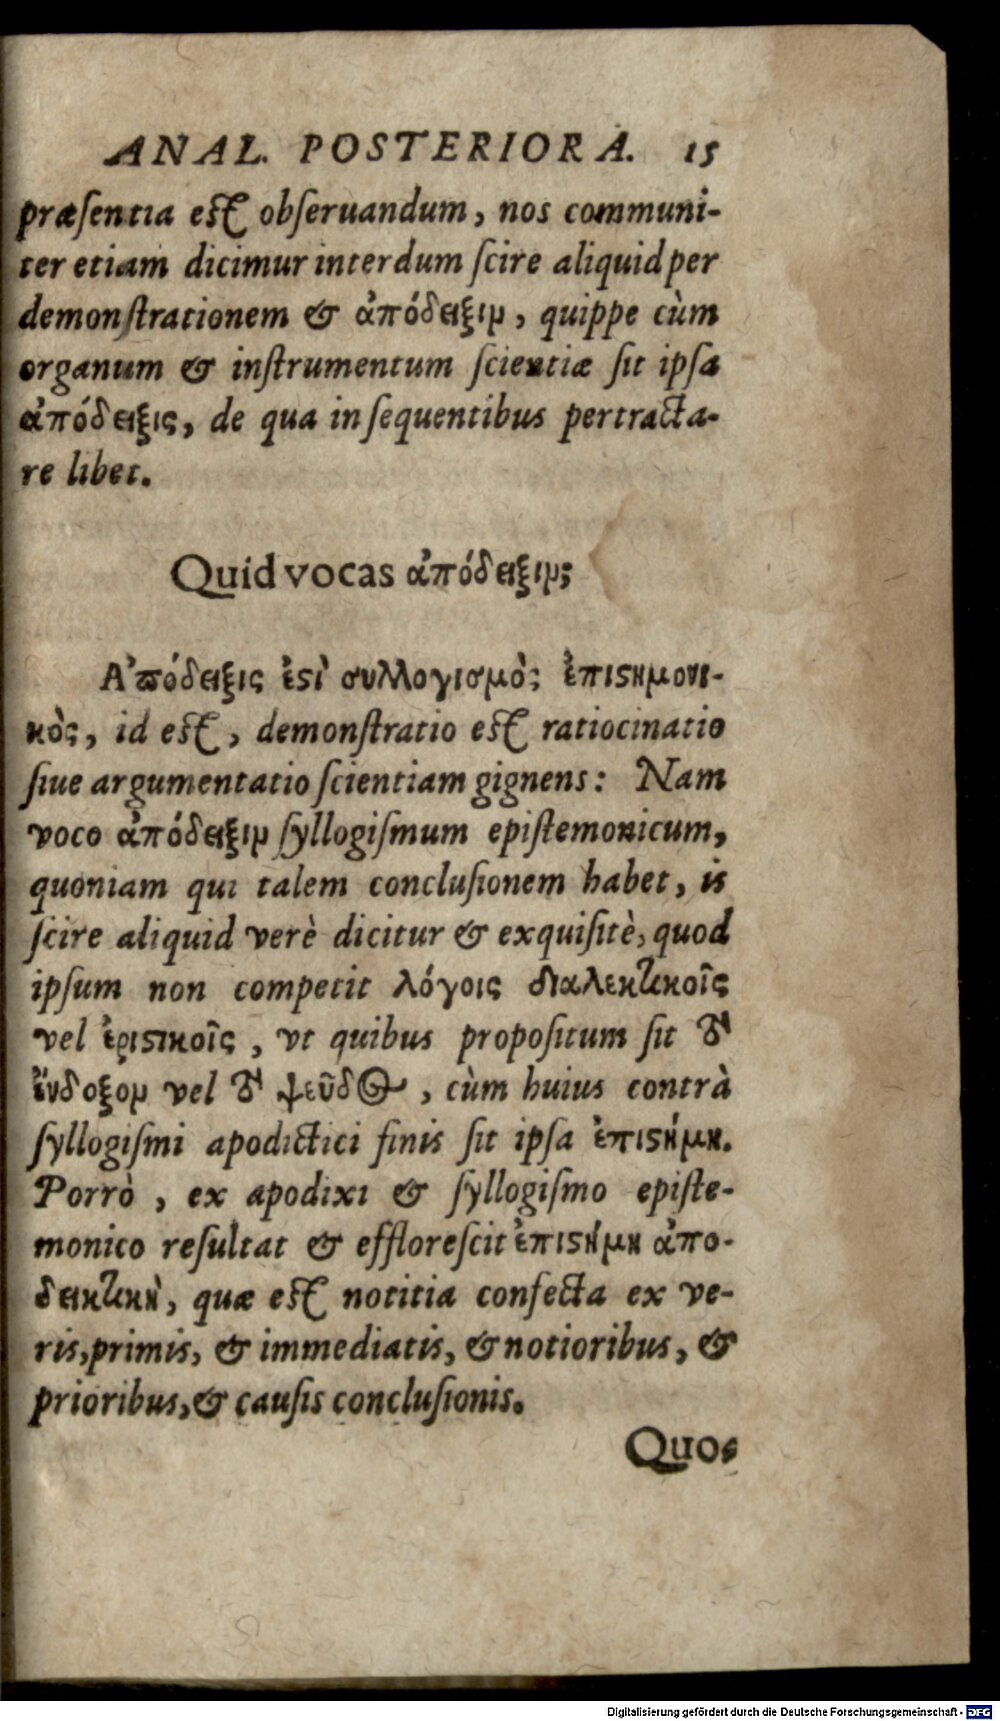 ANAL. POSTERIORA. 15
præsentia est obseruandum, nos communi-
ter etiam dicimur interdum scire aliquid per
demonstrationem & ἀπόδειξιν, quippe cùm
organum & instrumentum scientiæ sit ipsa
ἀπόδειξις, de qua in sequentibus pertracta-
re libet.
Quid vocas ἀπόδειξιν;
Ἀπόδειξις ἐϛὶ συλλογισμὸς ἐπιϛημονι-
κὸς, id est, demonstratio est ratiocinatio
siue argumentatio scientiam gignens: Nam
voco ἀπόδειξιν syllogismum epistemonicum,
quoniam qui talem conclusionem habet, is
scire aliquid verè dicitur & exquisitè, quod
ipsum non competit λόγοις διαλεκτικοῖς
vel ἐριϛικοῖς, vt quibus propositum sit τὸ
ἔνδοξον vel τὸ ψεῦδος, cùm huius contrà
syllogismi apodictici finis sit ipsa ἐπιϛήμη.
Porrò, ex apodixi & syllogismo episte-
monico resultat & efflorescit ἐπιϛήμη ἀπο-
δεικτικὴ, quæ est notitia confecta ex ve-
ris, primis, & immediatis, & notioribus, &
prioribus, & causis conclusionis.
Quos
Digitalisierung gefördert durch die Deutsche Forschungsgemeinschaft - DFG